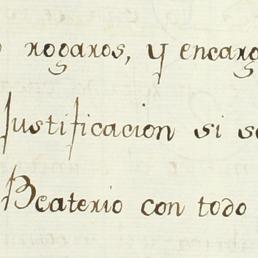 rogaros, y encarg
Justificacion si s
Beaterio con todo